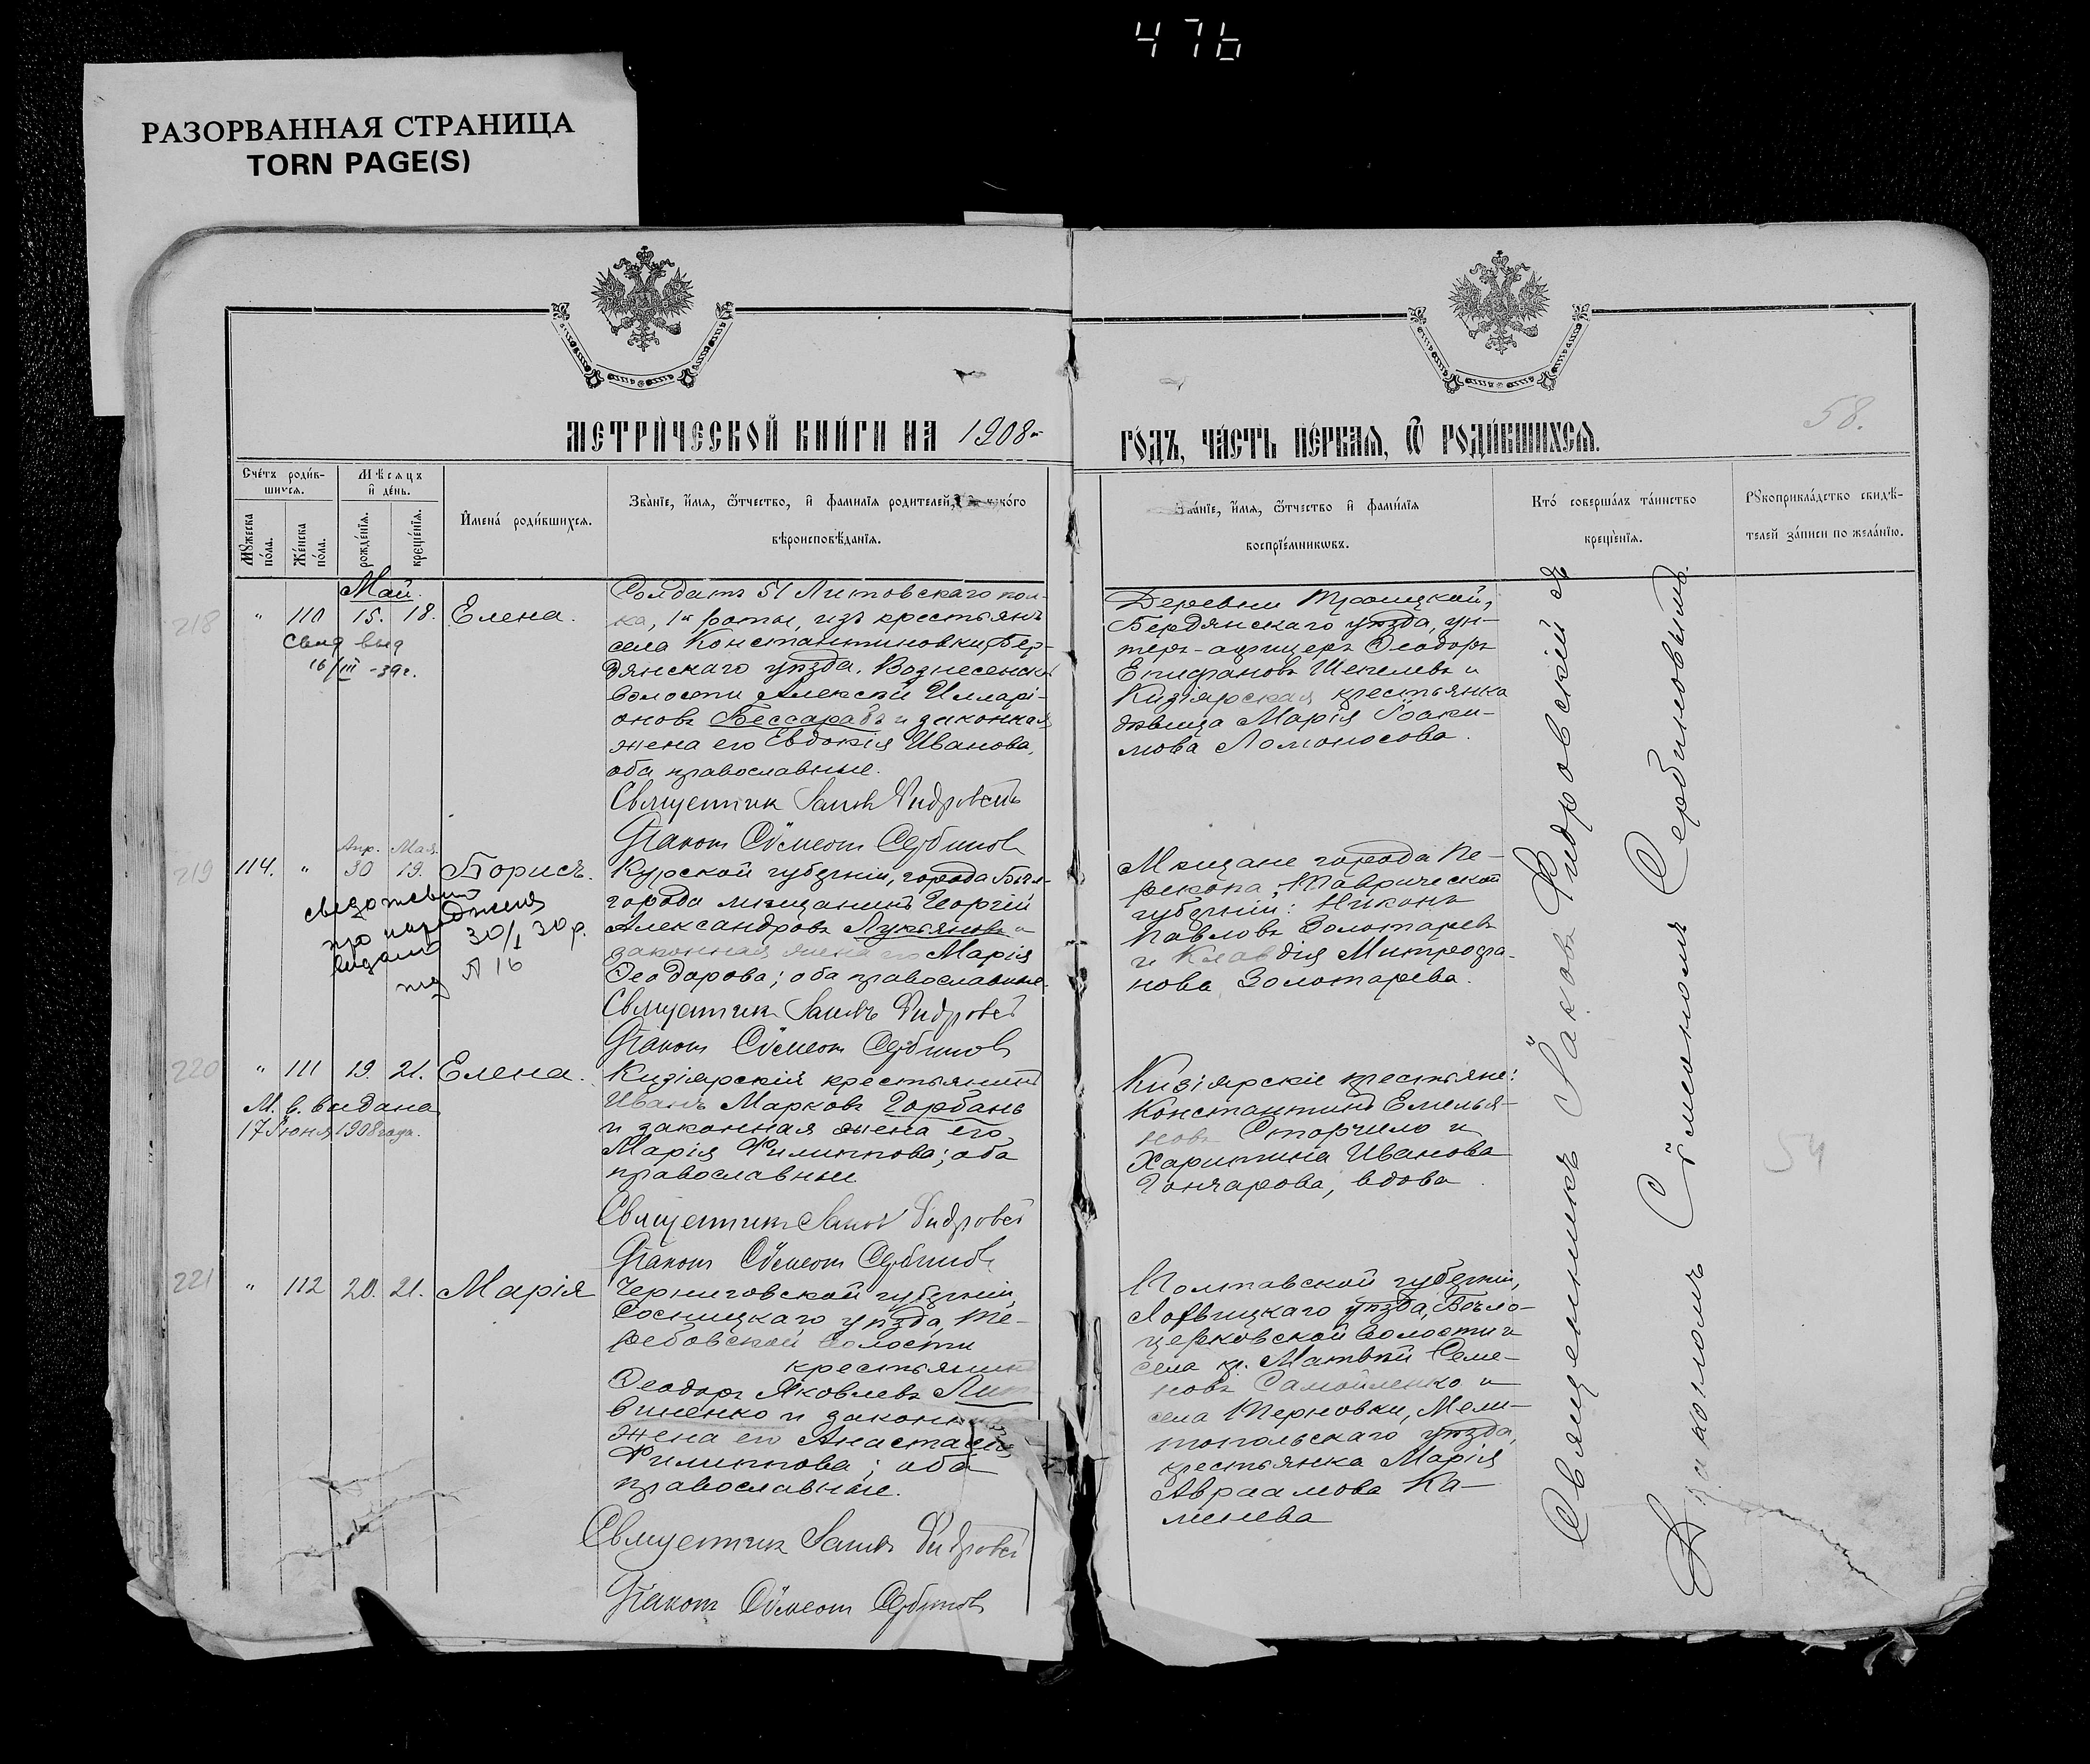 476
РАЗОРВАННАЯ СТРАНИЦА
TORN PAGE(S)
МЕТРИЧЕСКОЙ КНИГИ НА 1908
ГОДЪ, ЧАСТЬ ПЕРВАЯ, Ѽ РОДИВШИХСЯ.
58.
Счетъ родив-
шихся.
Мѣсяцъ
и день.
Мужеска
пола.
Женска
пола.
рожденія.
крещенія.
Имена родившихся.
Званіе, имя, отчество, и фамилія родителей,
вѣроисповѣданія.
Званіе, имя, отчество и фамилія
воспріемниковъ.
Кто совершалъ таинство
крещенія.
Рукоприкладство свидѣ-
телей записи по желанію.
218
Май.
" 110 15. 18. Елена.
свид выд
16/III -39г.
Солдатъ 51 Литовскаго пол-
ка, 1й роты, изъ крестьянъ
села Константиновки, Бер-
дянскаго уѣзда, Вознесенск
волости Алексѣй Илларі-
оновъ Бессарабъ и законная
жена его Евдокія Иванова,
оба православные.
Священник Іаков Фидровскій
Діакон Сѵмеон Сербинов
Деревни Троицкой,
Бердянскаго уѣзда, ун-
теръ-офицеръ Ѳеодоръ
Епифановъ Шепелевъ и
Кизіярская крестьянка
дѣвица Марія Іоаки-
мова Ломоносова.
219
Апр. Мая.
114. " 30 19. Борисъ.
про народження
видано 30/I 30 р.
16
Курской губерніи, города Бѣл-
города мѣщанинъ Георгій
Александровъ Лукьяновъ и
законная жена его Марія
Ѳеодорова; оба православные.
Священник Іаковъ Фидровскій
Діакон Сѵмеон Сербинов
Мѣщане города Пе-
рекопа, Таврической
губерніи: Никонъ
Павловъ Золотаревъ
и Клавдія Митрофа-
нова Золотарева.
220
" 111 19. 21. Елена.
М. в. выдана
17 Іюня 1908 года.
Кизіярскій крестьянинъ
Иванъ Марковъ Горбань
и законная жена его
Марія Филиппова; оба
православные
Священник Іаков Фидровскій
Діакон Сѵмеон Сербинов
Кизіярскіе крестьяне:
Константинъ Емелья-
новъ Сторчило и
Харитина Иванова
Гончарова, вдова.
54
221
" 112 20. 21. Марія
Черниговской губерніи,
Сосницкаго уѣзда, Те-
ребовской волости
крестьянинъ
Ѳеодоръ Яковлевъ Лит-
виненко и законная
жена его Анастасія
Филиппова; оба
православные.
Священник Іаков Фидровскій
Діакон Сѵмеон Сербинов
Полтавской губерніи,
Лохвицкаго уѣзда, Бѣло-
церковской волости и
села кр. Матвѣй Семе-
новъ Самойленко и
села Терновки, Мели-
топольскаго уѣзда,
крестьянка Марія
Авраамова Ка-
менева
Священникъ Іаковъ Фидровскій съ
Діакономъ Сѵмеономъ Сербиновымъ.